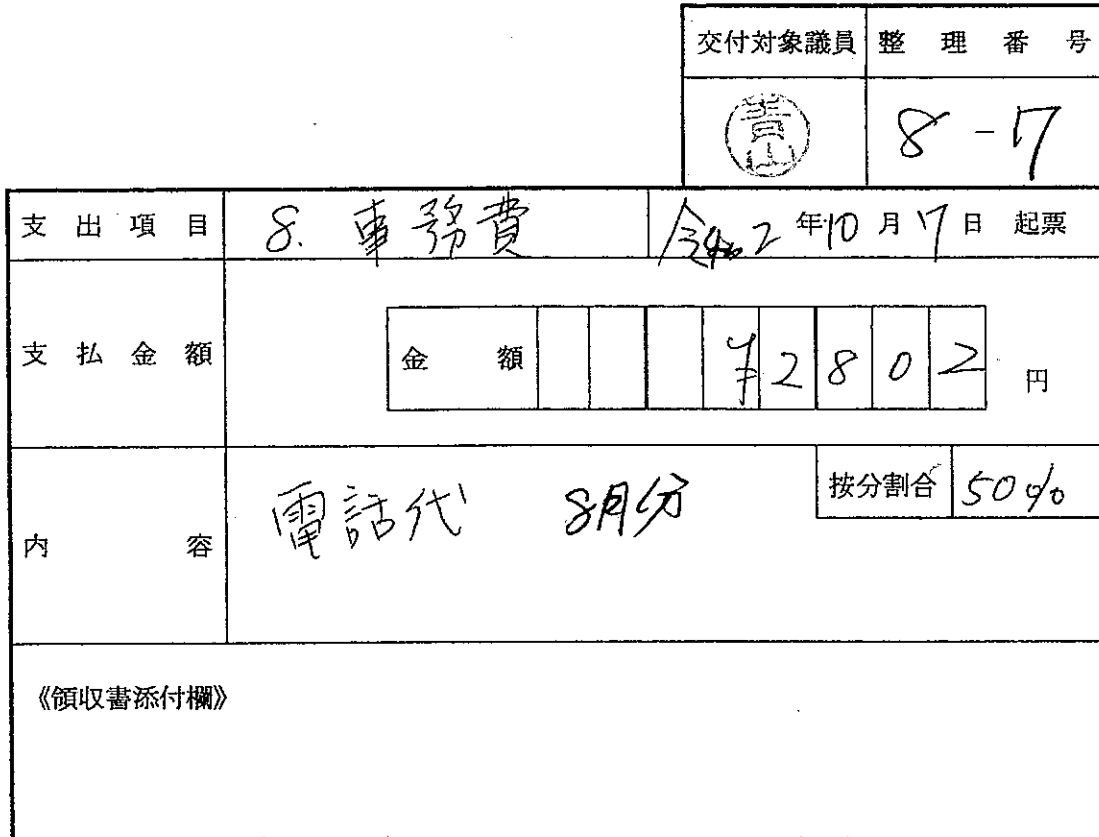 交付対象議員 整理番号
青山 8-7
支出項目 8. 事務費 令和2年10月7日 起票
支払金額 金額 ¥2802円
内容 電話代 8月分 按分割合 50%
《領収書添付欄》